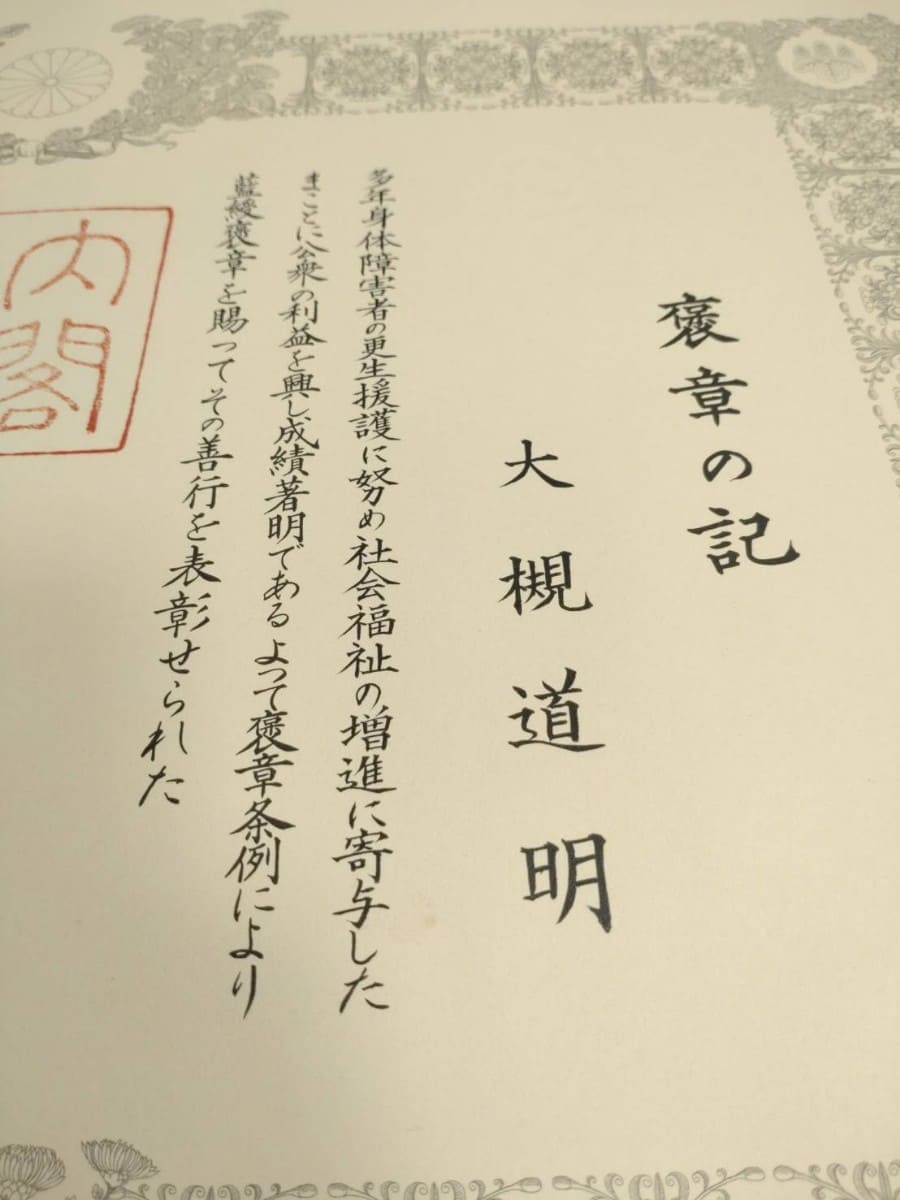 褒章の記
大槻道明
多年身体障害者の更生援護に努め社会福祉の増進に寄与した
まことに公衆の利益を興し成績著明である よって褒章条例により
藍綬褒章を賜ってその善行を表彰せられた
内閣